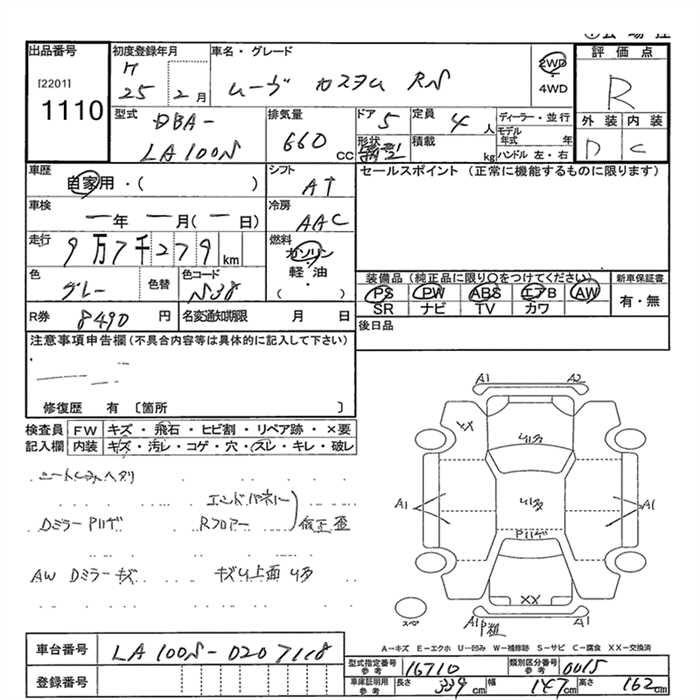 出品番号
[2201]
1110
初度登録年月
H
25 2月
車名・グレード
ムーヴ カスタム RS
2WD
4WD
評価点
R
外装 内装
D C
型式
DBA-
LA100S
排気量
660 CC
ドア 5
形状
定員 4人
積載 kg
ディーラー・並行
モデル年式 年
ハンドル 左・右
車歴
自家用・( )
シフト
AT
セールスポイント(正常に機能するものに限ります)
車検
一年 一月(一日)
冷房
AAC
走行
9万7千279km
燃料
ガソリン
軽・油
・
( )
色
グレー
色替
色コード
S38
装備品(純正品に限り○をつけてください)
PS PW ABS エアB AW
SR ナビ TV カワ
新車保証書
有・無
R券 8490円
名変通知期限 月 日
後日品
注意事項申告欄(不具合内容等は具体的に記入して下さい)
修復歴 有 〔箇所 〕
検査員 FW キズ・飛石・ヒビ割・リペア跡・×要
記入欄 内装 キズ・汚レ・コゲ・穴・スレ・キレ・破レ
シートしみヘタリ
エンドパネル
Dミラー P凹ゲ Rフロアー 修正歪
AW Dミラーキズ キズ凹上面凹多
A1 A2
XX
凹多
A1 凹多 A1
P凹ゲ
XX
スペア
A1P粗 A1
A-キズ E-エクボ U-凹み W-補修跡 S-サビ C-腐食 XX-交換済
車台番号 LA100S-0207118
登録番号
型式指定番号
参考
16710
類別区分番号
参考
0015
車庫証明用
参考
長さ 339cm 幅 147cm 高さ 162cm